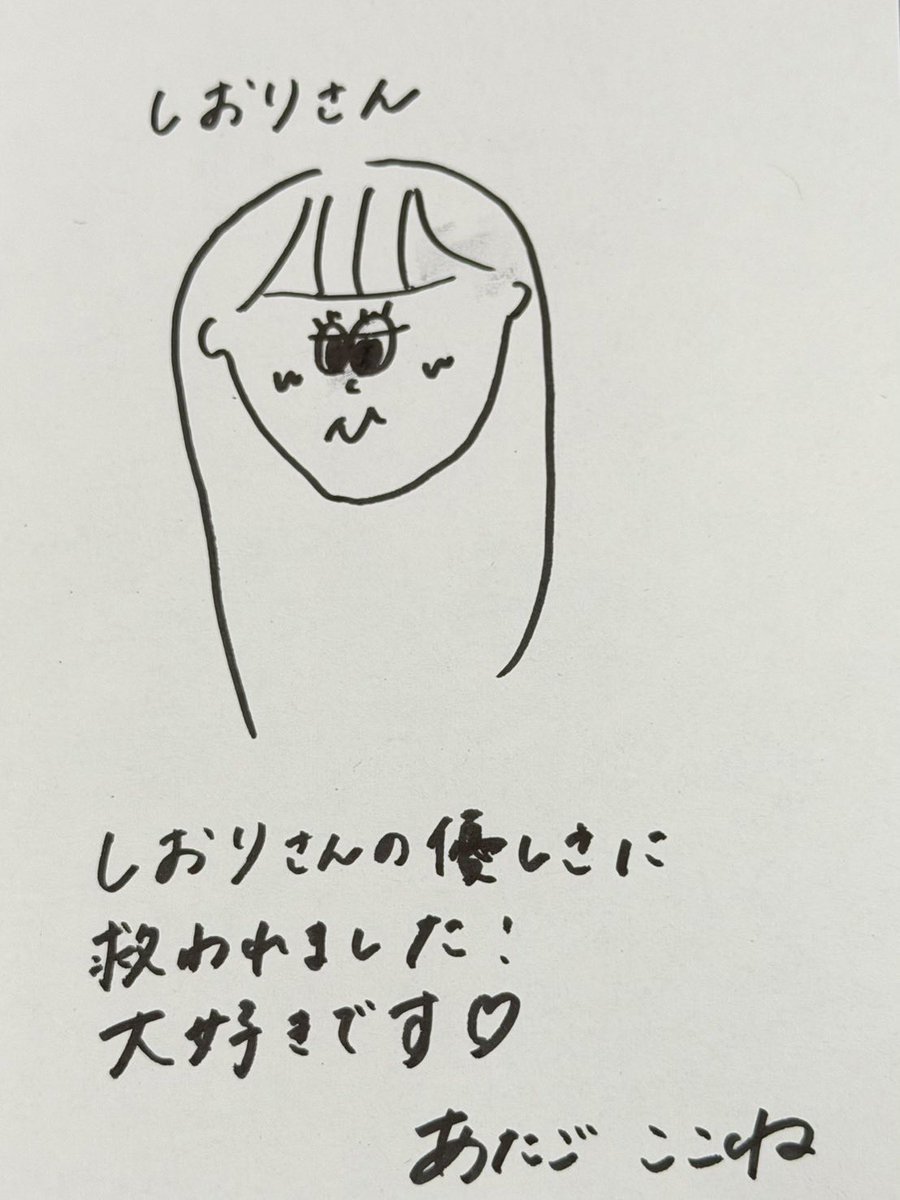 しおりさん
しおりさんの優しさに
救われました!
大好きです♡
あたご ここね